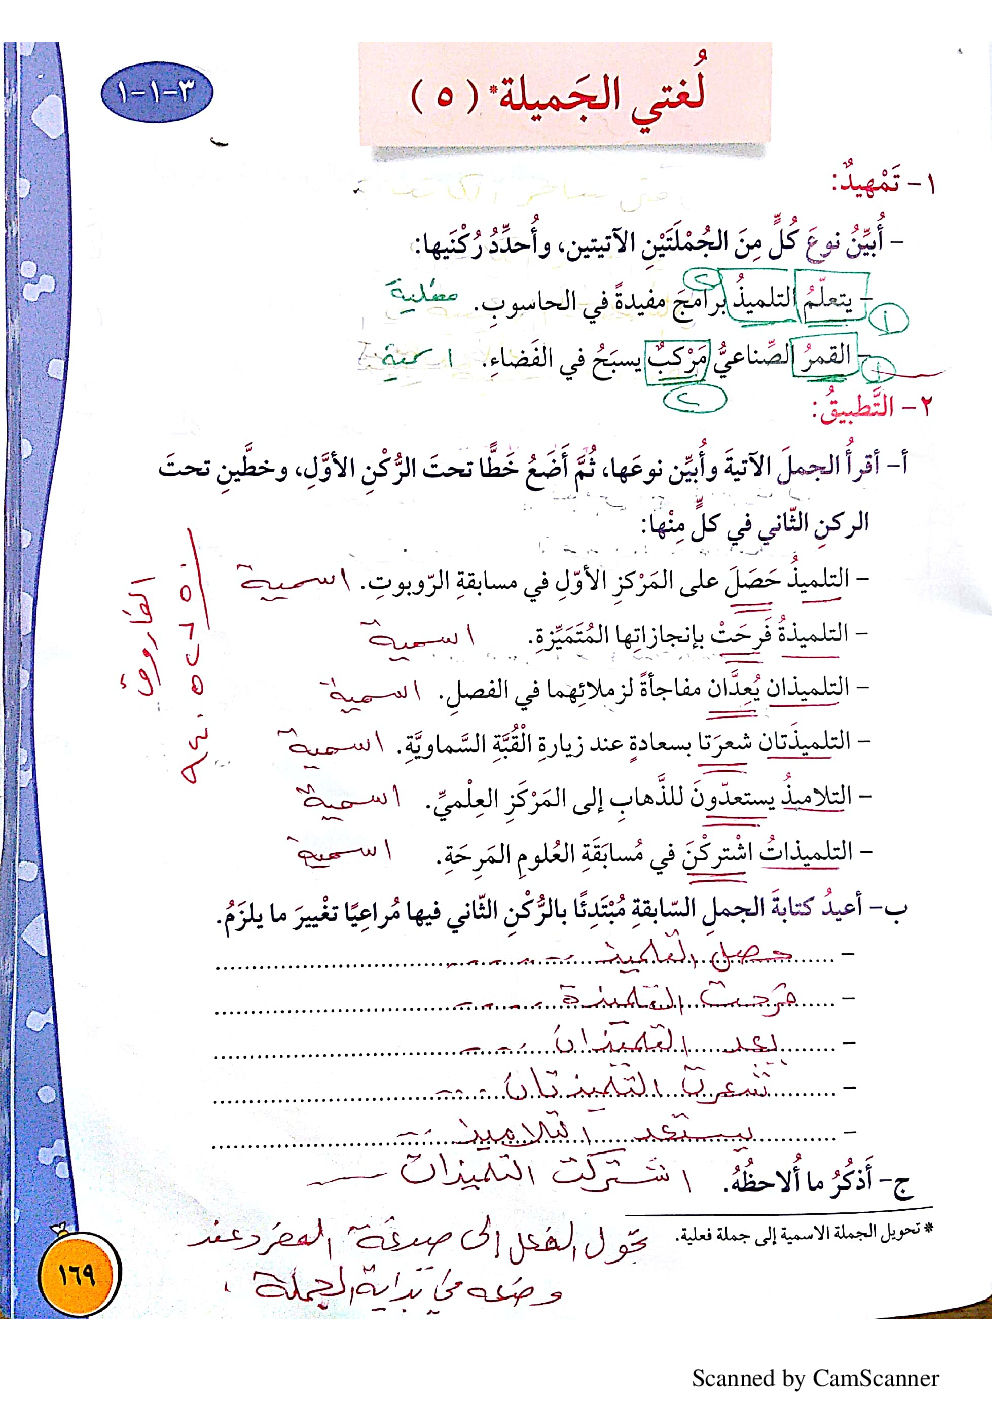 ٣-١-١
لُغتي الجَميلة* (٥)
١- تَمْهيدٌ:
- أُبيِّنُ نوعَ كُلٍّ مِنَ الجُمْلَتَيْنِ الآتيتين، وأُحدِّدُ رُكْنَيها:
- يتعلّمُ التلميذُ برامجَ مفيدةً في الحاسوبِ. فعلية
١ ٢
- القمرُ الصِّناعيُّ مَرْكبٌ يسبَحُ في الفَضاءِ. اسمية
١ ٢
٢- التَّطبيقُ:
أ- أقرأُ الجملَ الآتيةَ وأُبيِّن نوعَها، ثُمَّ أضَعُ خَطًّا تحتَ الرُّكْنِ الأوَّلِ، وخطَّينِ تحتَ
الركنِ الثّاني في كلٍّ مِنْها:
- التلميذُ حَصَلَ على المَرْكزِ الأوّلِ في مسابقةِ الرّوبوتِ. اسمية
- التلميذةُ فَرِحَتْ بإنجازاتِها المُتَمَيِّزةِ. اسمية
- التلميذان يُعِدَّان مفاجأةً لزملائِهما في الفصلِ. اسمية
- التلميذَتان شعرَتا بسعادةٍ عند زيارةِ الْقُبَّةِ السَّماويَّةِ. اسمية
- التلاميذُ يستعدّونَ للذَّهابِ إلى المَرْكَزِ العِلْميِّ. اسمية
- التلميذاتُ اشْتركْنَ في مُسابَقَةِ العُلومِ المَرِحَةِ. اسمية
الفاروق
ب- أعيدُ كتابةَ الجملِ السّابقةِ مُبْتَدِئًا بالرُّكْنِ الثّاني فيها مُراعيًا تغْييرَ ما يلزَمُ.
- حصل التلميذ
- فرحت التلميذة
- يعد التلميذان
- شعرت التلميذتان
- يستعد التلاميذ
اشتركت التلميذات
ج- أَذكُرُ ما أُلاحظُهُ.
تحول الفعل إلى صيغة المفرد عند
وضعه في بداية الجملة.
* تحويل الجملة الاسمية إلى جملة فعلية.
١٦٩
Scanned by CamScanner